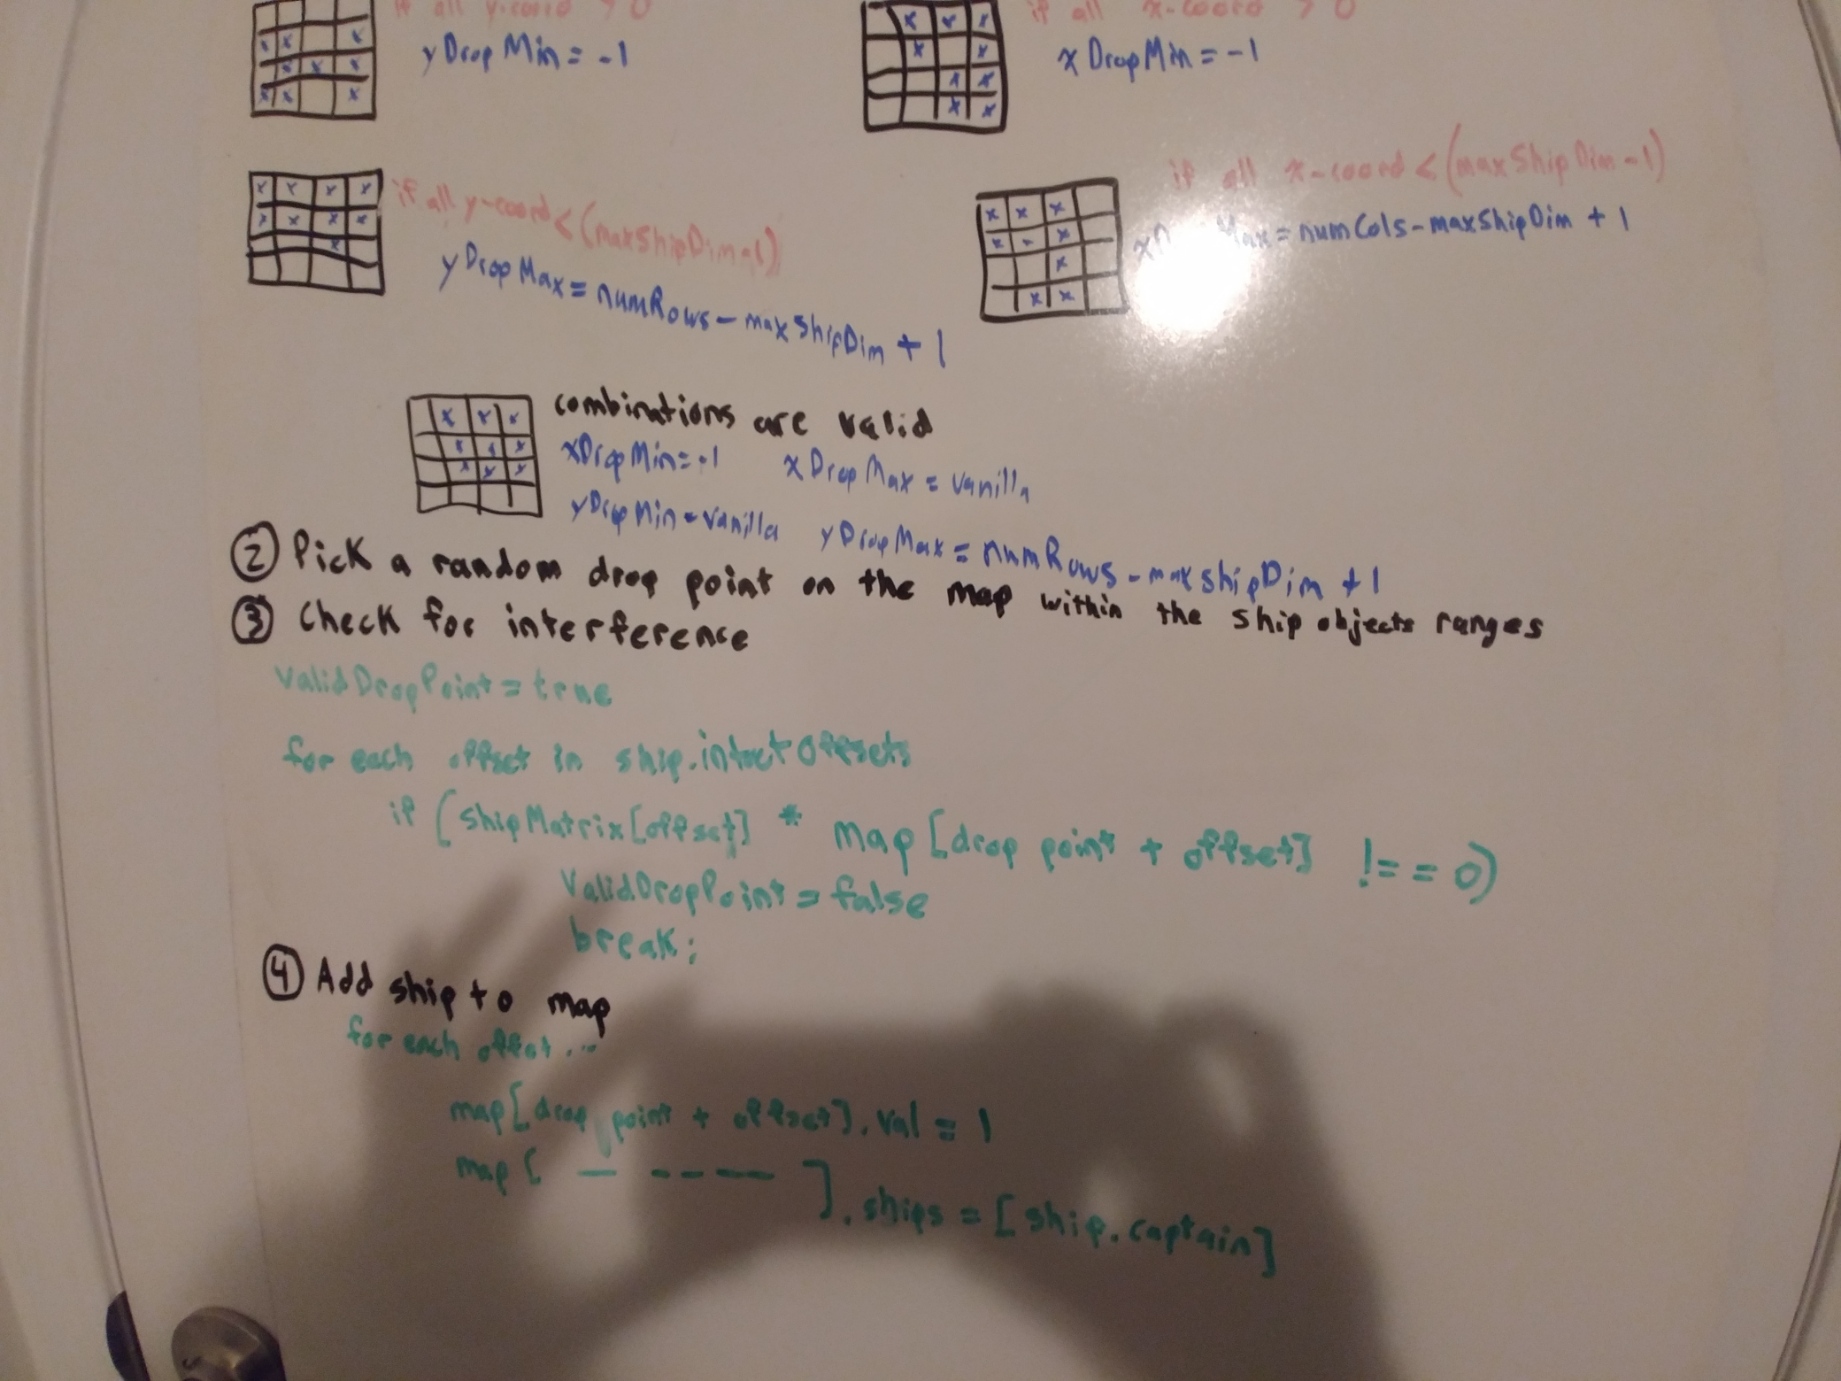 if all y-coord > 0
yDropMin = -1
if all x-coord > 0
xDropMin = -1
if all y-coord < (maxShipDim-1)
yDropMax = numRows - maxShipDim + 1
if all x-coord < (maxShipDim-1)
Max = numCols - maxShipDim + 1
combinations are valid
xDropMin = -1 xDropMax = vanilla
yDropMin = vanilla yDropMax = numRows - maxShipDim + 1
② Pick a random drop point on the map within the ship objects ranges
③ Check for interference
ValidDropPoint = true
for each offset in ship.intactOffsets
if (shipMatrix[offset] * map[drop point + offset] !== 0)
ValidDropPoint = false
break;
④ Add ship to map
for each offset ...
map[drop point + offset].val = 1
map[ — - - - — ].ships = [ship.captain]